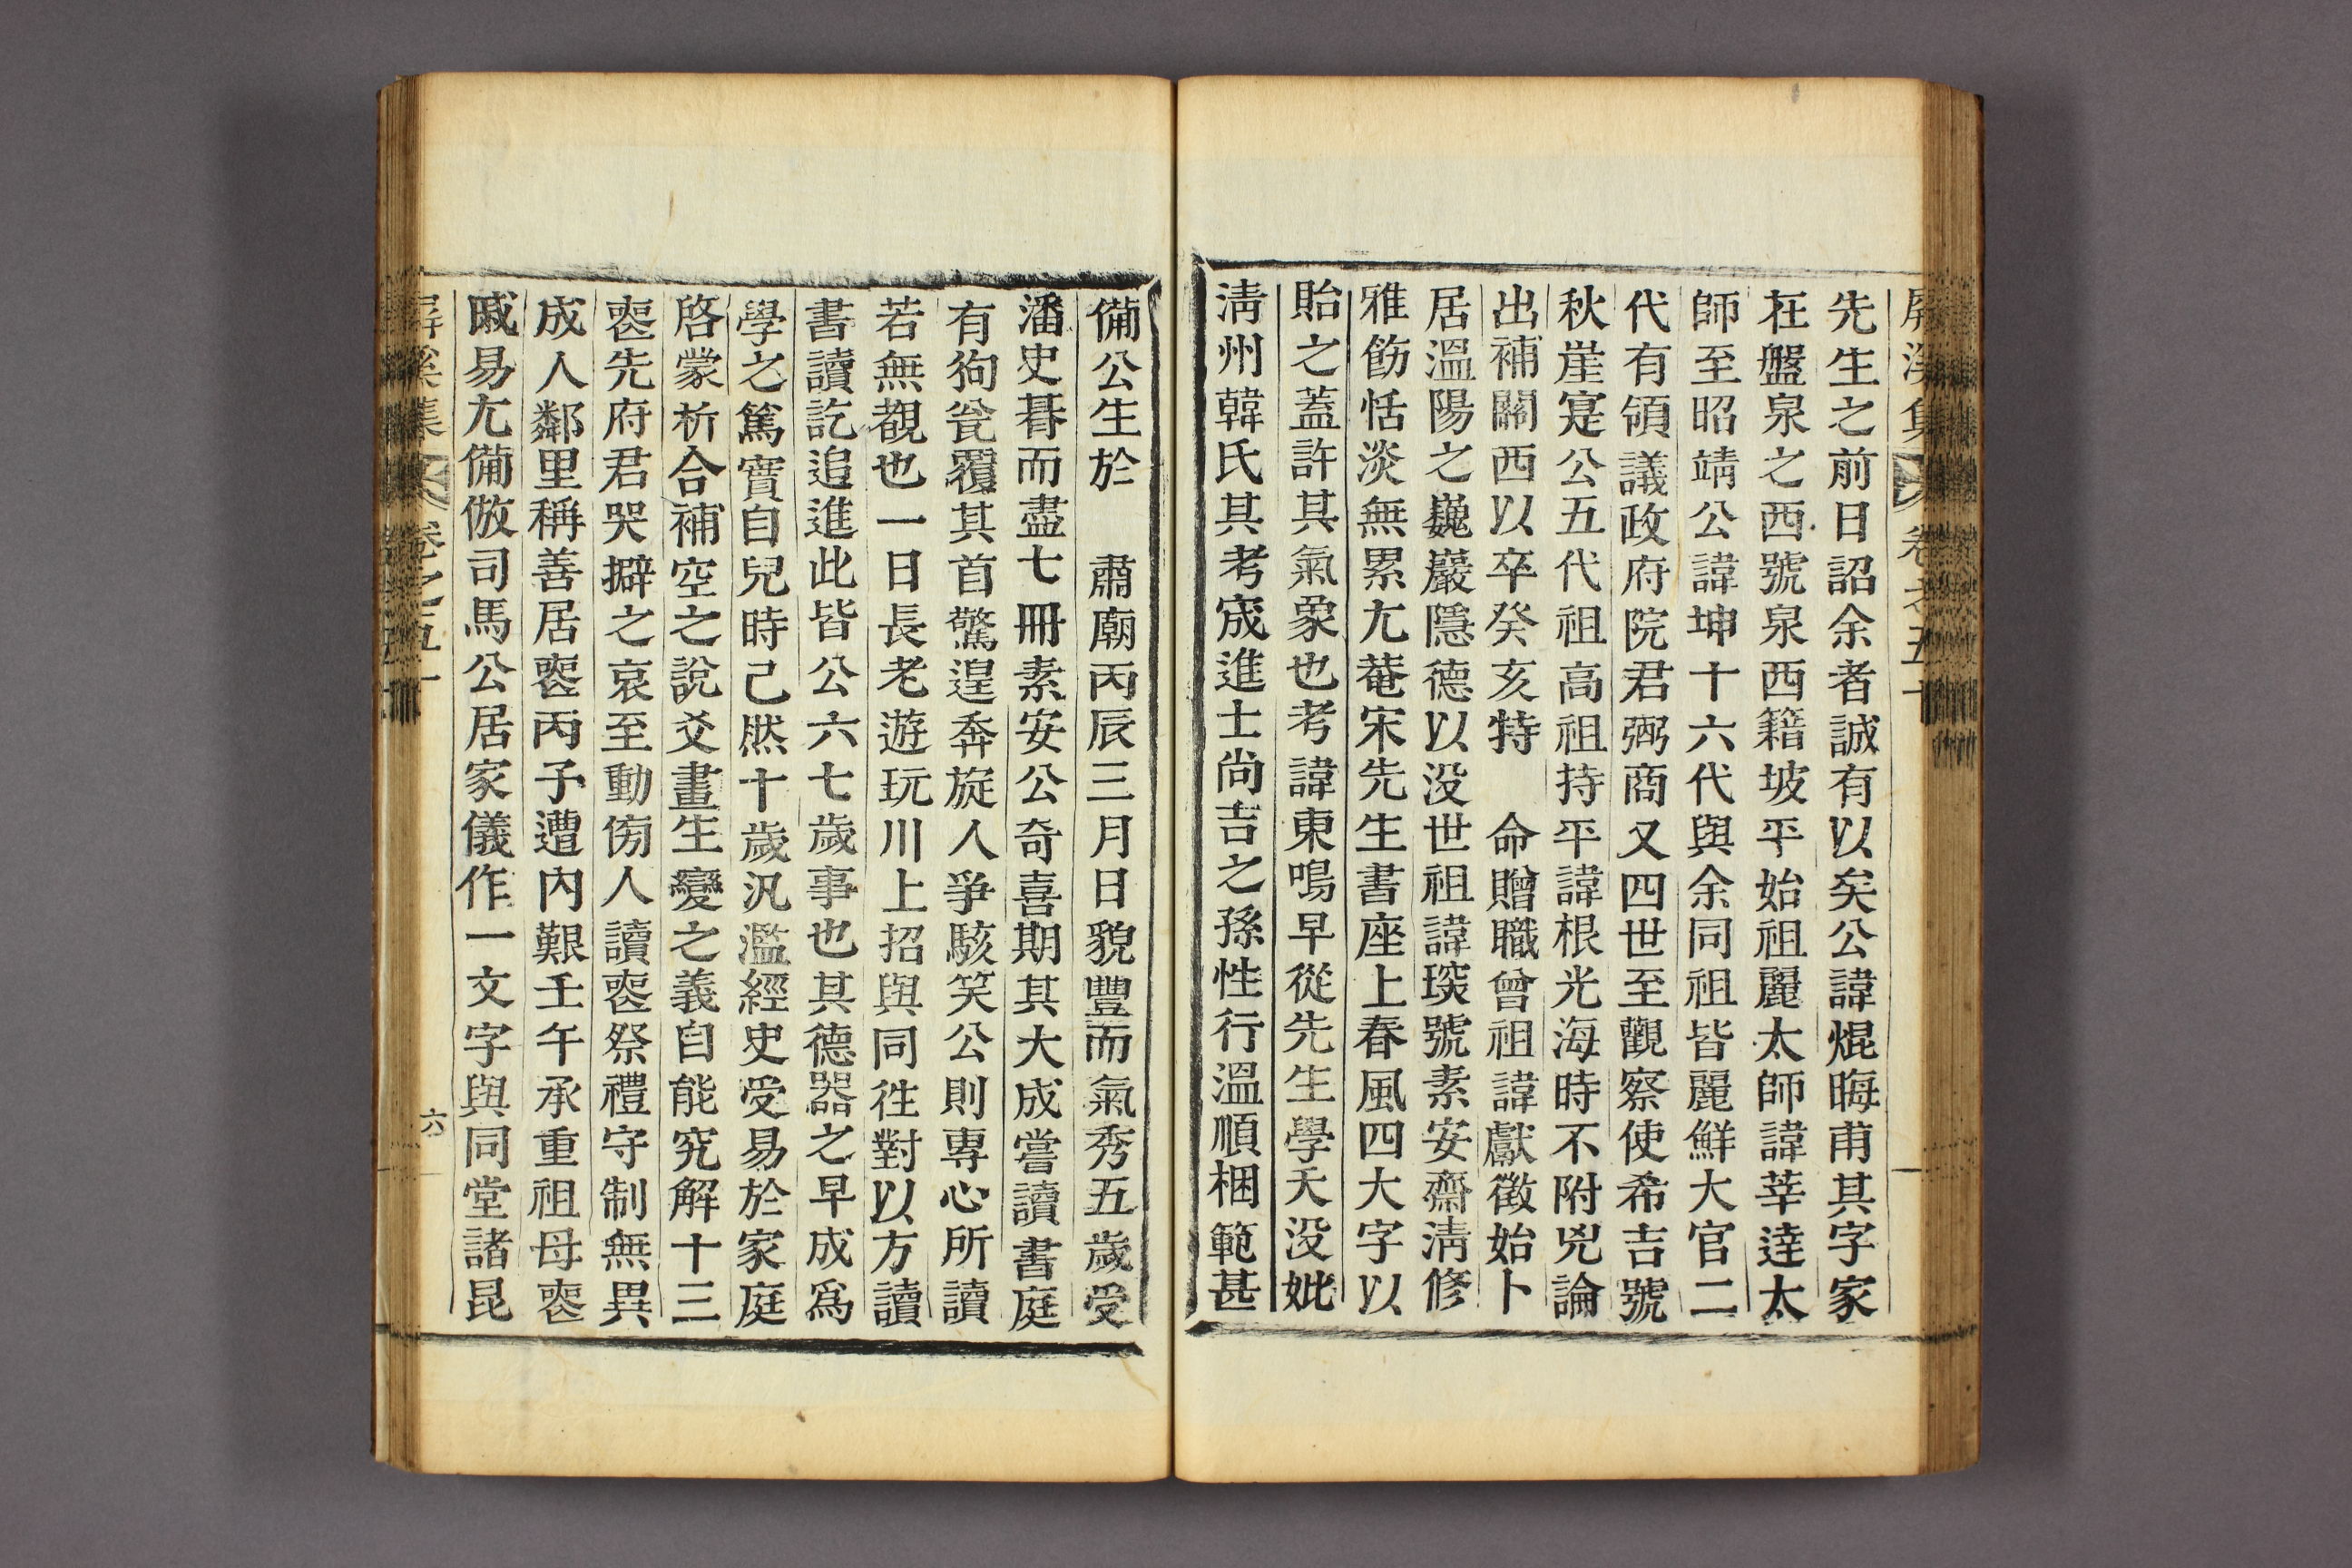 屏溪集 卷之五十
先生之前日詔余者誠有以矣公諱焜晦甫其字家
在盤泉之西號泉西籍坡平始祖麗太師諱莘達太
師至昭靖公諱坤十六代與余同祖皆麗鮮大官二
代有領議政府院君弼商又四世至觀察使希吉號
秋崖寔公五代祖高祖持平諱根光海時不附兇論
出補關西以卒癸亥特 命贈職曾祖諱獻徵始卜
居溫陽之巍巖隱德以没世祖諱琰號素安齋淸修
雅飭恬淡無累尤菴宋先生書座上春風四大字以
貽之蓋許其氣象也考諱東鳴早從先生學夭没妣
淸州韓氏其考宬進士尙吉之孫性行溫順梱範甚
備公生於 肅廟丙辰三月日貌豐而氣秀五歲受
潘史朞而盡七冊素安公奇喜期其大成嘗讀書庭
有狗瓮覆其首驚遑奔旋人爭駭笑公則專心所讀
若無覩也一日長老遊玩川上招與同徃對以方讀
書讀訖追進此皆公六七歲事也其德器之早成爲
學之篤實自兒時已然十歲汎濫經史受易於家庭
啓蒙析合補空之說爻畫生變之義自能究解十三
喪先府君哭擗之哀至動傍人讀喪祭禮守制無異
成人鄰里稱善居喪丙子遭內艱壬午承重祖母喪
戚易尤備倣司馬公居家儀作一文字與同堂諸昆
屏溪集 卷之五十 六